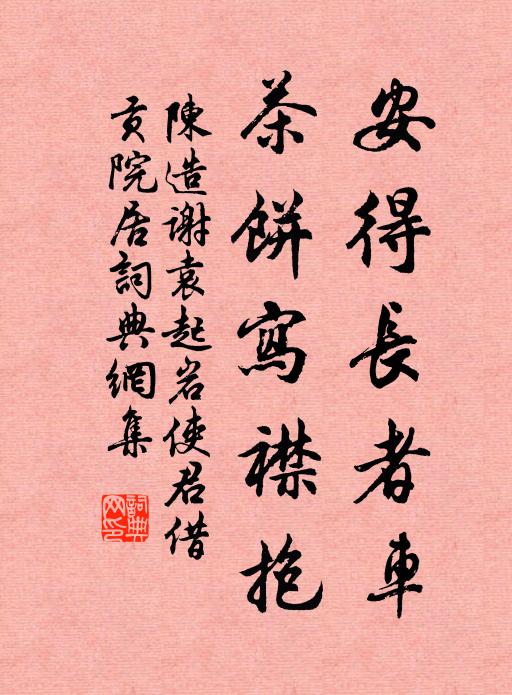 安得長者車
茶餅寫襟抱
陳造謝袁起岩使君借
貢院居詞典網集
詞典网印